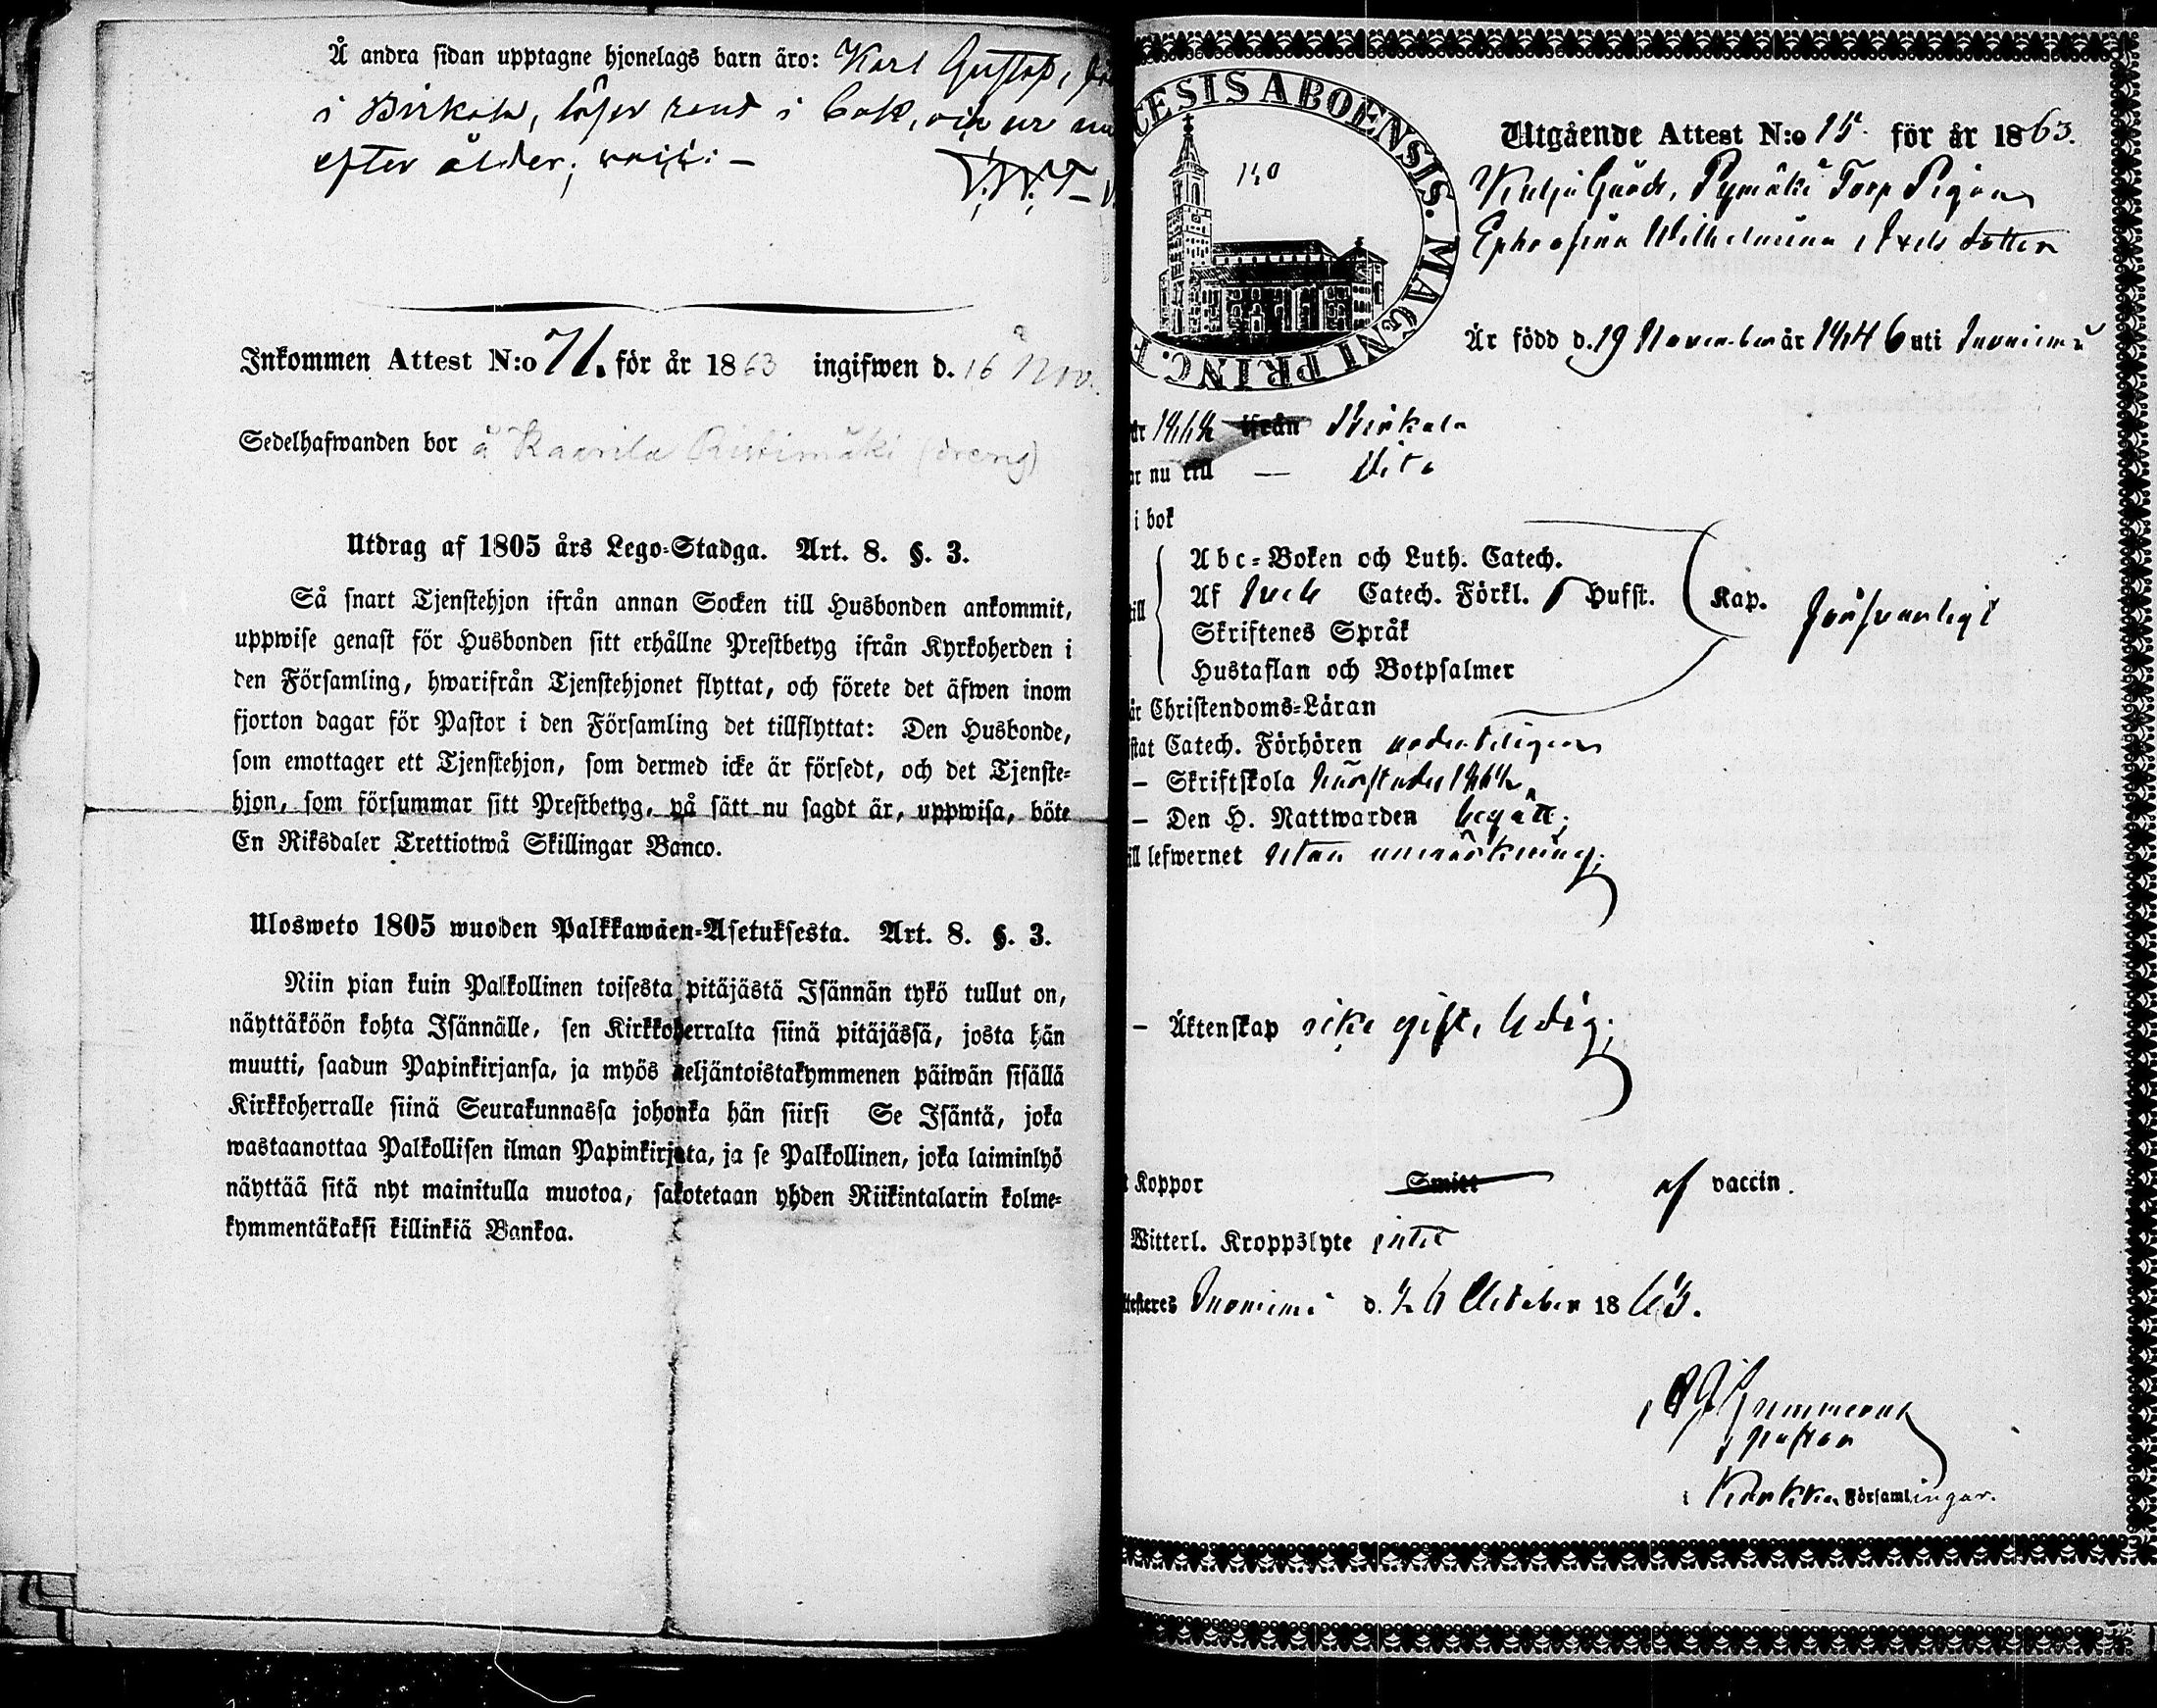 Å andra sidan upptagne hjonelags barn äro: Karl Gustaf,
i Birkala, läser rent i bok,
efter ålder;
Inkommen Attest N:o 71. för år 1863 ingifwen d. 16 Nov.
Sedelhafwanden bor å Kaarila Ristimäki (dreng)
Utdrag af 1805 års Lego-Stadga. Art. 8. §. 3.
Så snart Tjenstehjon ifrån annan Socken till Husbonden ankommit,
uppwise genast för Husbonden sitt erhållne Prestbetyg ifrån Kyrkoherden i
den Församling, hwarifrån Tjenstehjonet flyttat, och förete det äfwen inom
fjorton dagar för Pastor i den Församling det tillflyttat: Den Husbonde,
som emottager ett Tjenstehjon, som dermed icke är försedt, och det Tjenste-
hjon, som försummar sitt Prestbetyg, på sätt nu sagdt är, uppwisa, böte
En Riksdaler Trettiotwå Skillingar Banco.
Ulosweto 1805 wuoden Palkkawäen-Asetuksesta. Art. 8. §. 3.
Niin pian kuin Palkollinen toisesta pitäjästä Isännän tykö tullut on,
näyttäköön kohta Isännälle, sen Kirkkoherralta siinä pitäjässä, josta hän
muutti, saadun Papinkirjansa, ja myös neljäntoistakymmenen päiwän sisällä
Kirkkoherralle siinä Seurakunnassa johonka hän siirsi Se Isäntä, joka
wastaanottaa Palkollisen ilman Papinkirjata, ja se Palkollinen, joka laiminlyö
näyttää sitä nyt mainitulla muotoa, sakotetaan yhden Riikintalarin kolme-
kymmentäkaksi killinkiä Bankoa.
CESIS ABOENSIS. MAGNI PRINC. F
140
Utgående Attest N:o 15. för år 1863.
Kulju Gårds, Pymäki Torp Pigan
Ephrosina Wilhelmina Axels dotter
Är född d. 19 November år 1846 uti Suoniemi
år 1862 ifrån Birkala
ar nu till — dito
i bok
Abc-Boken och Luth. Catech.
Af Luth Catech. Förkl. Husst.
Kap. försvarligt
till
Skriftenes Språk
Hustaflan och Botpsalmer
år Christendoms-Läran
stat Catech. Förhören ordentligen
– Skriftskola 1862,
– Den H. Nattwarden begått;
ill lefwernet utan anmärkning;
– Äktenskap icke gift, ledig;
t Koppor Smitt af vaccin.
Witterl. Kroppslyte intet
ttesteres Suoniemi d. 26 October 1863.
pastor
i Karkku Församlingar.